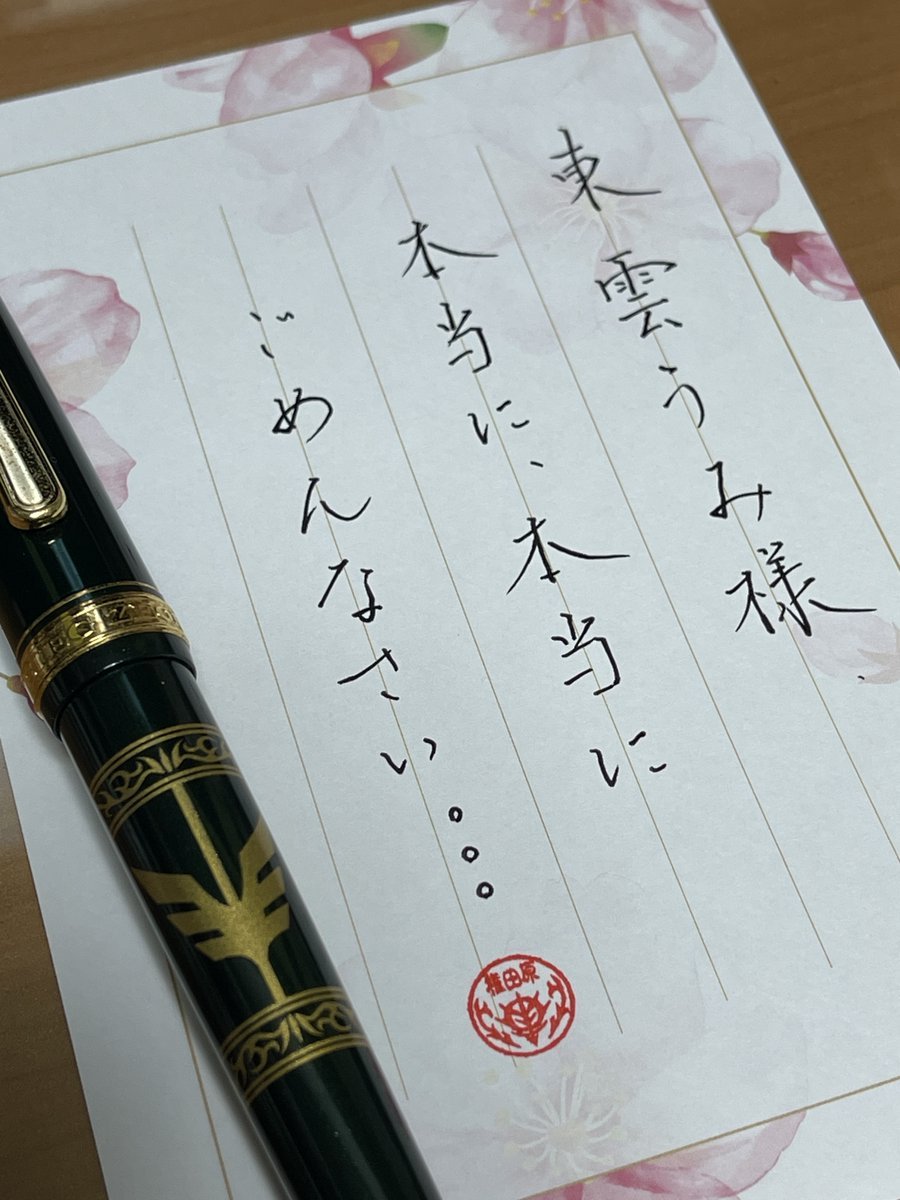 東雲うみ様
本当に、本当に
ごめんなさい。。。
権田原